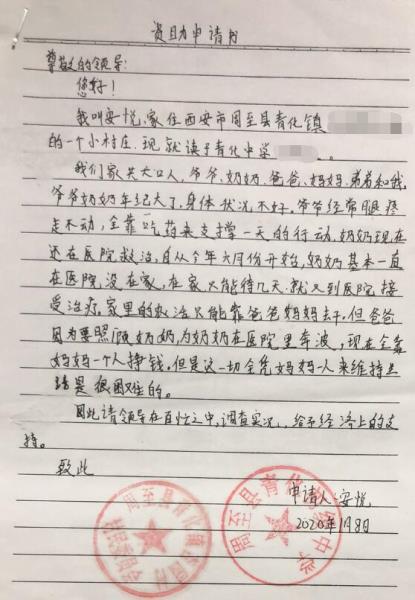 资助申请书
尊敬的领导:
您好!
我叫安悦,家住西安市周至县青化镇
的一个小村庄.现就读于青化中学。
我们家共六口人,爷爷、奶奶、爸爸、妈妈、弟弟和我,
爷爷奶奶年纪大了,身体状况不好。爷爷经常腿疼
走不动,全靠吃药来支撑一天的行动,奶奶现在
还在医院救治,自从今年六月份开始,奶奶基本一直
在医院,没在家,在家只能待几天,就又到医院接
受治疗,家里的农活只能靠爸爸妈妈去干。但爸爸
因为要照顾奶奶,为奶奶在医院里奔波,现在全靠
妈妈一个人挣钱,但是这一切全凭妈妈一人来维持生
活是很困难的。
因此请领导在百忙之中,调查实况,给予经济上的支
持。
致此
申请人:安悦
2020年1月8日
周至县青化
周至县青化中学